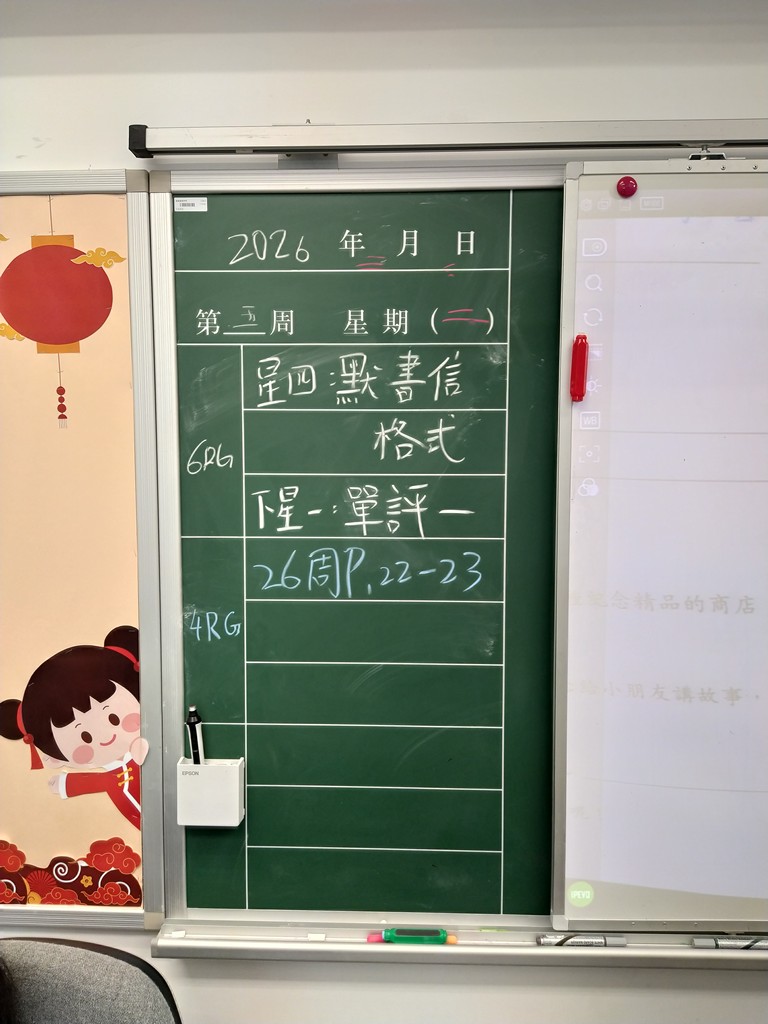 2026 年 二 月 日
第 五 周 星 期 (二)
6RG
星四:默書信
格式
下星一:單評一
4RG
26周P.22-23
EPSON
WB
念精品的商店
小朋友講故事，
IPEVO